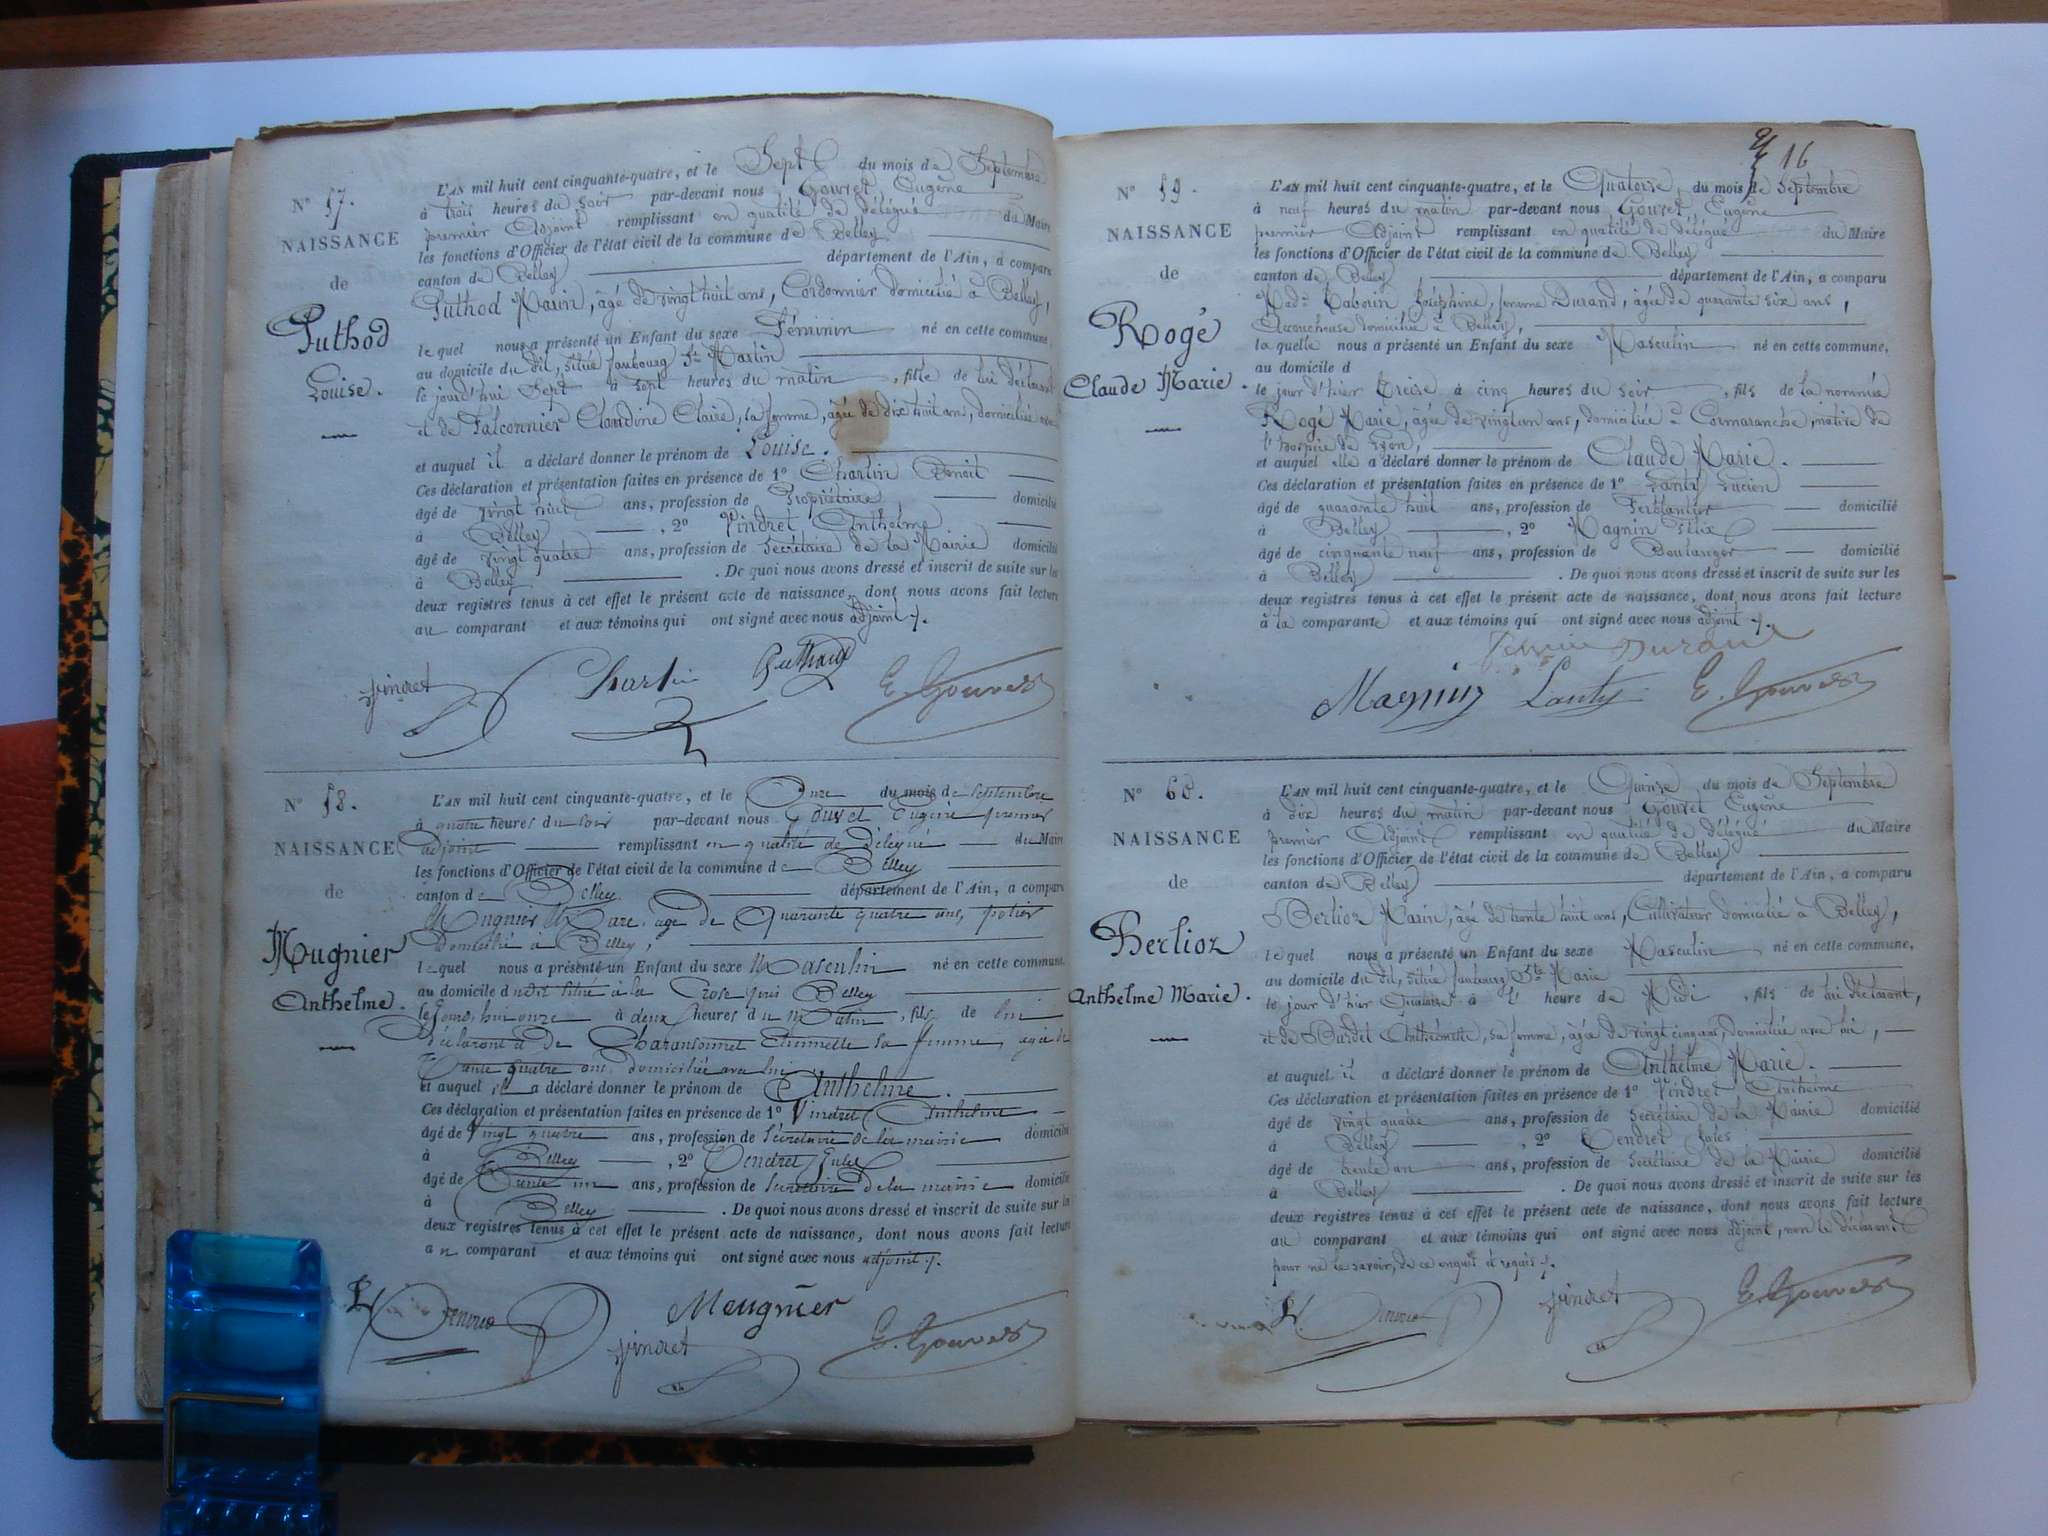 N° 57.
NAISSANCE
de
Puthod
Louise.
L'AN mil huit cent cinquante-quatre, et le Sept du mois de Septembre
à trois heures du soir par-devant nous Gouvet Eugène
premier Adjoint remplissant en qualité de délégué du Maire
les fonctions d'Officier de l'état civil de la commune de Belley
canton de Belley département de l'Ain, a comparu
Puthod Marin, âgé de vingt huit ans, Cordonnier domicilié à Belley,
le quel nous a présenté un Enfant du sexe Féminin né en cette commune,
au domicile du dit, situé faubourg St Martin
le jourd'hui Sept à sept heures du matin, fille de lui déclarant
et de Falconnier Claudine Claire, sa femme, âgée de dix huit ans, domiciliée avec
et auquel il a déclaré donner le prénom de Louise.
Ces déclaration et présentation faites en présence de 1° Charlin Benoit
âgé de vingt huit ans, profession de Propriétaire domicilié
à Belley, 2° Vindret Anthelme
âgé de vingt quatre ans, profession de Secrétaire de la Mairie domicilié
à Belley. De quoi nous avons dressé et inscrit de suite sur les
deux registres tenus à cet effet le présent acte de naissance, dont nous avons fait lecture
au comparant et aux témoins qui ont signé avec nous adjoint.
Vindret Charlin Puthod E. Gouvet
N° 58.
NAISSANCE
de
Mugnier
Anthelme.
L'AN mil huit cent cinquante-quatre, et le Onze du mois de septembre
à quatre heures du soir par-devant nous Gouvet Eugène premier
adjoint remplissant en qualité de délégué du Maire
les fonctions d'Officier de l'état civil de la commune de Belley
canton de Belley département de l'Ain, a comparu
Mugnier Marc, âgé de Quarante quatre ans, potier
domicilié à Belley,
le quel nous a présenté un Enfant du sexe Masculin né en cette commune
au domicile du dit situé à la Croze près Belley
le jourd'hui onze à deux heures du Matin, fils de lui
déclarant et de Charansonnet Etiennette sa femme, âgée de
Trente quatre ans domiciliée avec lui
et auquel il a déclaré donner le prénom de Anthelme.
Ces déclaration et présentation faites en présence de 1° Vindret Anthelme
âgé de Vingt quatre ans, profession de Secrétaire de la mairie domicilié
à Belley, 2° Tendret Jules
âgé de Trente un ans, profession de secrétaire de la mairie domicilié
à Belley. De quoi nous avons dressé et inscrit de suite sur les
deux registres tenus à cet effet le présent acte de naissance, dont nous avons fait lecture
au comparant et aux témoins qui ont signé avec nous adjoint.
Tendret Vindret Meugnier E. Gouvet
16
N° 59.
NAISSANCE
de
Rogé
Claude Marie.
L'AN mil huit cent cinquante-quatre, et le Quatorze du mois de Septembre
à neuf heures du matin par-devant nous Gouvet Eugène
premier Adjoint remplissant en qualité de délégué du Maire
les fonctions d'Officier de l'état civil de la commune de Belley
canton de Belley, département de l'Ain, a comparu
Mad.e Tabouin Joséphine, femme Durand, âgée de quarante six ans,
Accoucheuse domiciliée à Belley,
la quelle nous a présenté un Enfant du sexe Masculin né en cette commune,
au domicile d
le jour d'hier treize à cinq heures du soir, fils de la nommée
Rogé Marie, âgée de vingt un ans, domiciliée à Cormaranche, native de
l'hospice de Lyon,
et auquel elle a déclaré donner le prénom de Claude Marie.
Ces déclaration et présentation faites en présence de 1° Lanty Lucien
âgé de quarante huit ans, profession de Ferblantier domicilié
à Belley, 2° Magnin Félix
âgé de cinquante neuf ans, profession de Boulanger domicilié
à Belley. De quoi nous avons dressé et inscrit de suite sur les
deux registres tenus à cet effet le présent acte de naissance, dont nous avons fait lecture
à la comparante et aux témoins qui ont signé avec nous adjoint.
femme Durand
Magnin Lanty E. Gouvet
N° 60.
NAISSANCE
de
Berlioz
Anthelme Marie.
L'AN mil huit cent cinquante-quatre, et le Quinze du mois de Septembre
à dix heures du matin par-devant nous Gouvet Eugène
premier Adjoint remplissant en qualité de délégué du Maire
les fonctions d'Officier de l'état civil de la commune de Belley
canton de Belley département de l'Ain, a comparu
Berlioz Marin, âgé de trente huit ans, Cultivateur domicilié à Belley,
le quel nous a présenté un Enfant du sexe Masculin né en cette commune,
au domicile du dit, situé faubourg Ste Marie
le jour d'hier Quatorze à l' heure de Midi, fils de lui déclarant,
et de Burdet Anthelmette, sa femme, âgée de vingt cinq ans, domiciliée avec lui,
et auquel il a déclaré donner le prénom de Anthelme Marie.
Ces déclaration et présentation faites en présence de 1° Vindret Anthelme
âgé de vingt quatre ans, profession de Secrétaire de la Mairie domicilié
à Belley, 2° Tendret Jules
âgé de trente un ans, profession de Secrétaire de la Mairie domicilié
à Belley. De quoi nous avons dressé et inscrit de suite sur les
deux registres tenus à cet effet le présent acte de naissance, dont nous avons fait lecture
au comparant et aux témoins qui ont signé avec nous adjoint, non le déclarant
pour ne le savoir, de ce enquis et requis.
Tendret Vindret E. Gouvet